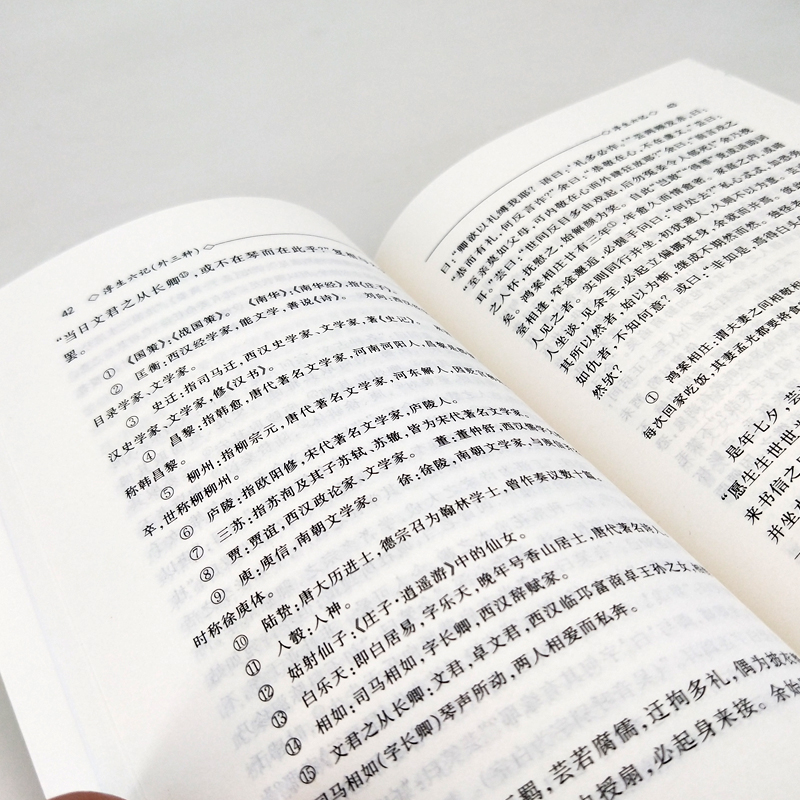 42 ◇浮生六记(外三种)◇
“当日文君之从长卿⑮,或不在琴而在此乎?”
罢。
① 《国策》:《战国策》。 《南华》:《南华经》,指《庄子》
② 匡衡:西汉经学家,能文学,善说《诗》。 刘向:西
目录学家、文学家。
③ 史迁:指司马迁,西汉史学家、文学家,著《史记》。
汉史学家、文学家,修《汉书》。
④ 昌黎:指韩愈,唐代著名文学家,河南河阳人,昌黎
称韩昌黎。
⑤ 柳州:指柳宗元,唐代著名文学家,河东解人,因贬
卒,世称柳柳州。
⑥ 庐陵:指欧阳修,宋代著名文学家,庐陵人。
⑦ 三苏:指苏洵及其子苏轼、苏辙,皆为宋代著名文学家。
⑧ 贾:贾谊,西汉政论家、文学家。 董:董仲舒,西汉儒学
⑨ 庾:庾信,南朝文学家。 徐:徐陵,南朝文学家,与
时称徐庾体。
⑩ 陆贽:唐大历进士,德宗召为翰林学士,曾作奏议数十篇
⑪ 人彀:人神。
⑫ 姑射仙子:《庄子·逍遥游》中的仙女。
⑬ 白乐天:即白居易,字乐天,晚年号香山居士,唐代著名诗人
⑭ 相如:司马相如,字长卿,西汉辞赋家。
⑮ 文君之从长卿:文君,卓文君,西汉临邛富南卓王孙之女,
司马相如(字长卿)琴声所动,两人相爱而私奔。
羁,芸若腐儒,迂拘多礼,偶为披衣
授扇,必起身来接。余始
◇浮生六记◇ 43
曰:“卿欲以礼缚我耶?语曰:‘礼多必诈。’”芸两颊发赤,曰:
“恭而有礼,何反言诈?”余曰:“恭敬在心,不在虚文。”芸曰:
“至亲莫如父母,可内敬在心而外肆狂放耶?”余曰:“前言戏之
耳。”芸曰:“世间反目多由戏起,后勿冤妾,令人郁死!”余乃挽
之入怀,抚慰之,始解颜为笑。自此“岂敢”“得罪”竟成语助词
矣。鸿案相庄廿有三年①,年愈久而情愈密。家庭之内,或暗
室相逢,窄途邂逅,必握手问曰:“何处去?”私心忒忒,如恐旁
人见之者。实则同行并坐,初犹避人,久则不以为意。芸或与
人坐谈,见余至,必起立偏挪其身,余就而并焉。彼此皆不觉
其所以然者,始以为惭,继成不期然而然。独怪老
如仇者,不知何意?或曰:“非如是,焉得白头
然欤?
① 鸿案相庄:谓夫妻之间相敬
每次回家吃饭,其妻孟光都要将食
是年七夕,芸
“愿生生世世
来书信之
并坐